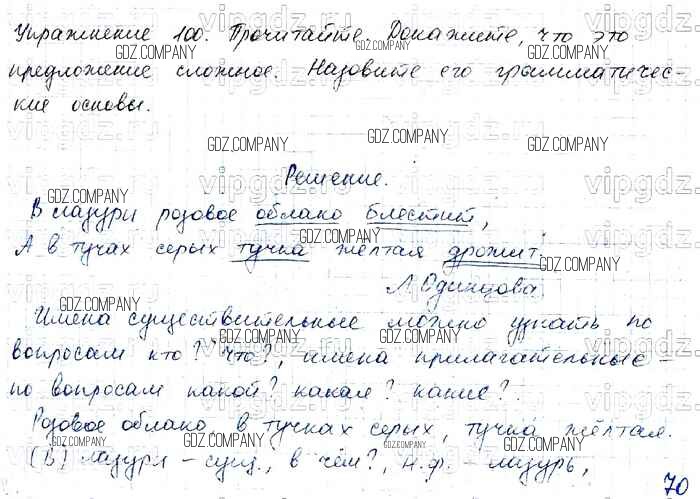 Упражнение 100. Прочитайте. Докажите, что это
предложение сложное. Назовите его грамматичес-
кие основы.
Решение.
В лазури розовое облако блестит,
А в тучах серых тучка жёлтая дрожит.
Л. Одинцова
Имена существительные можно узнать по
вопросам кто? что?, имена прилагательные -
по вопросам какой? какая? какие?
Розовое облако, в тучках серых, тучка жёлтая.
(В) лазури - сущ., в чём?, н.ф. - лазурь,
70
GDZ.COMPANY
vipgdz.ru